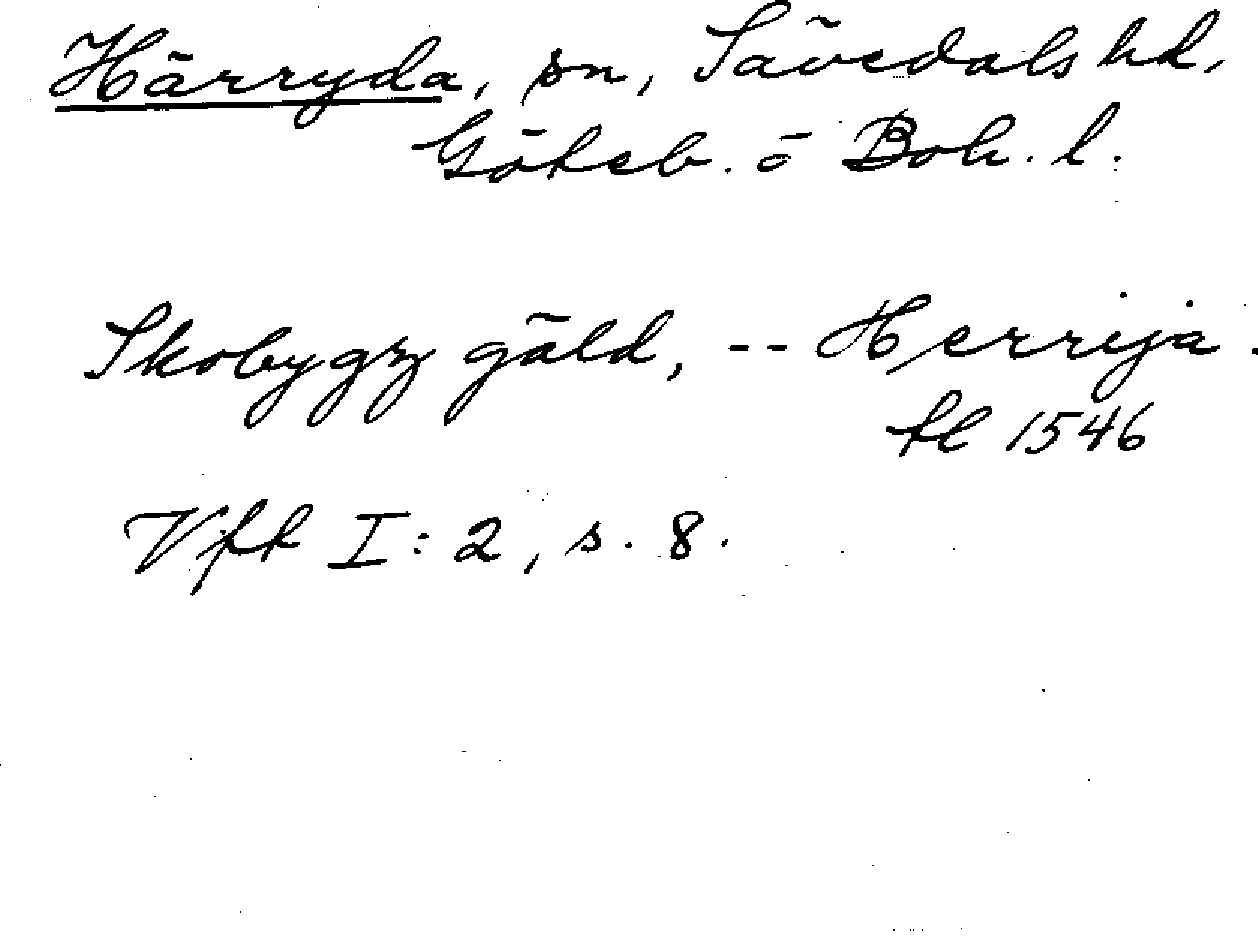 Härryda, sn, Sävedals hd,
Göteb. o Boh. l.
Skobygz gäld, -- Herrija.
fl 1546
Vfft I: 2, s. 8.